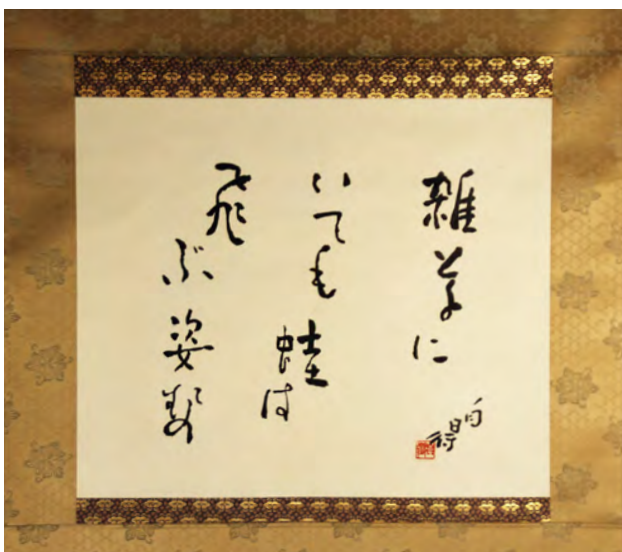 雑草に
いても蛙は
飛ぶ姿勢